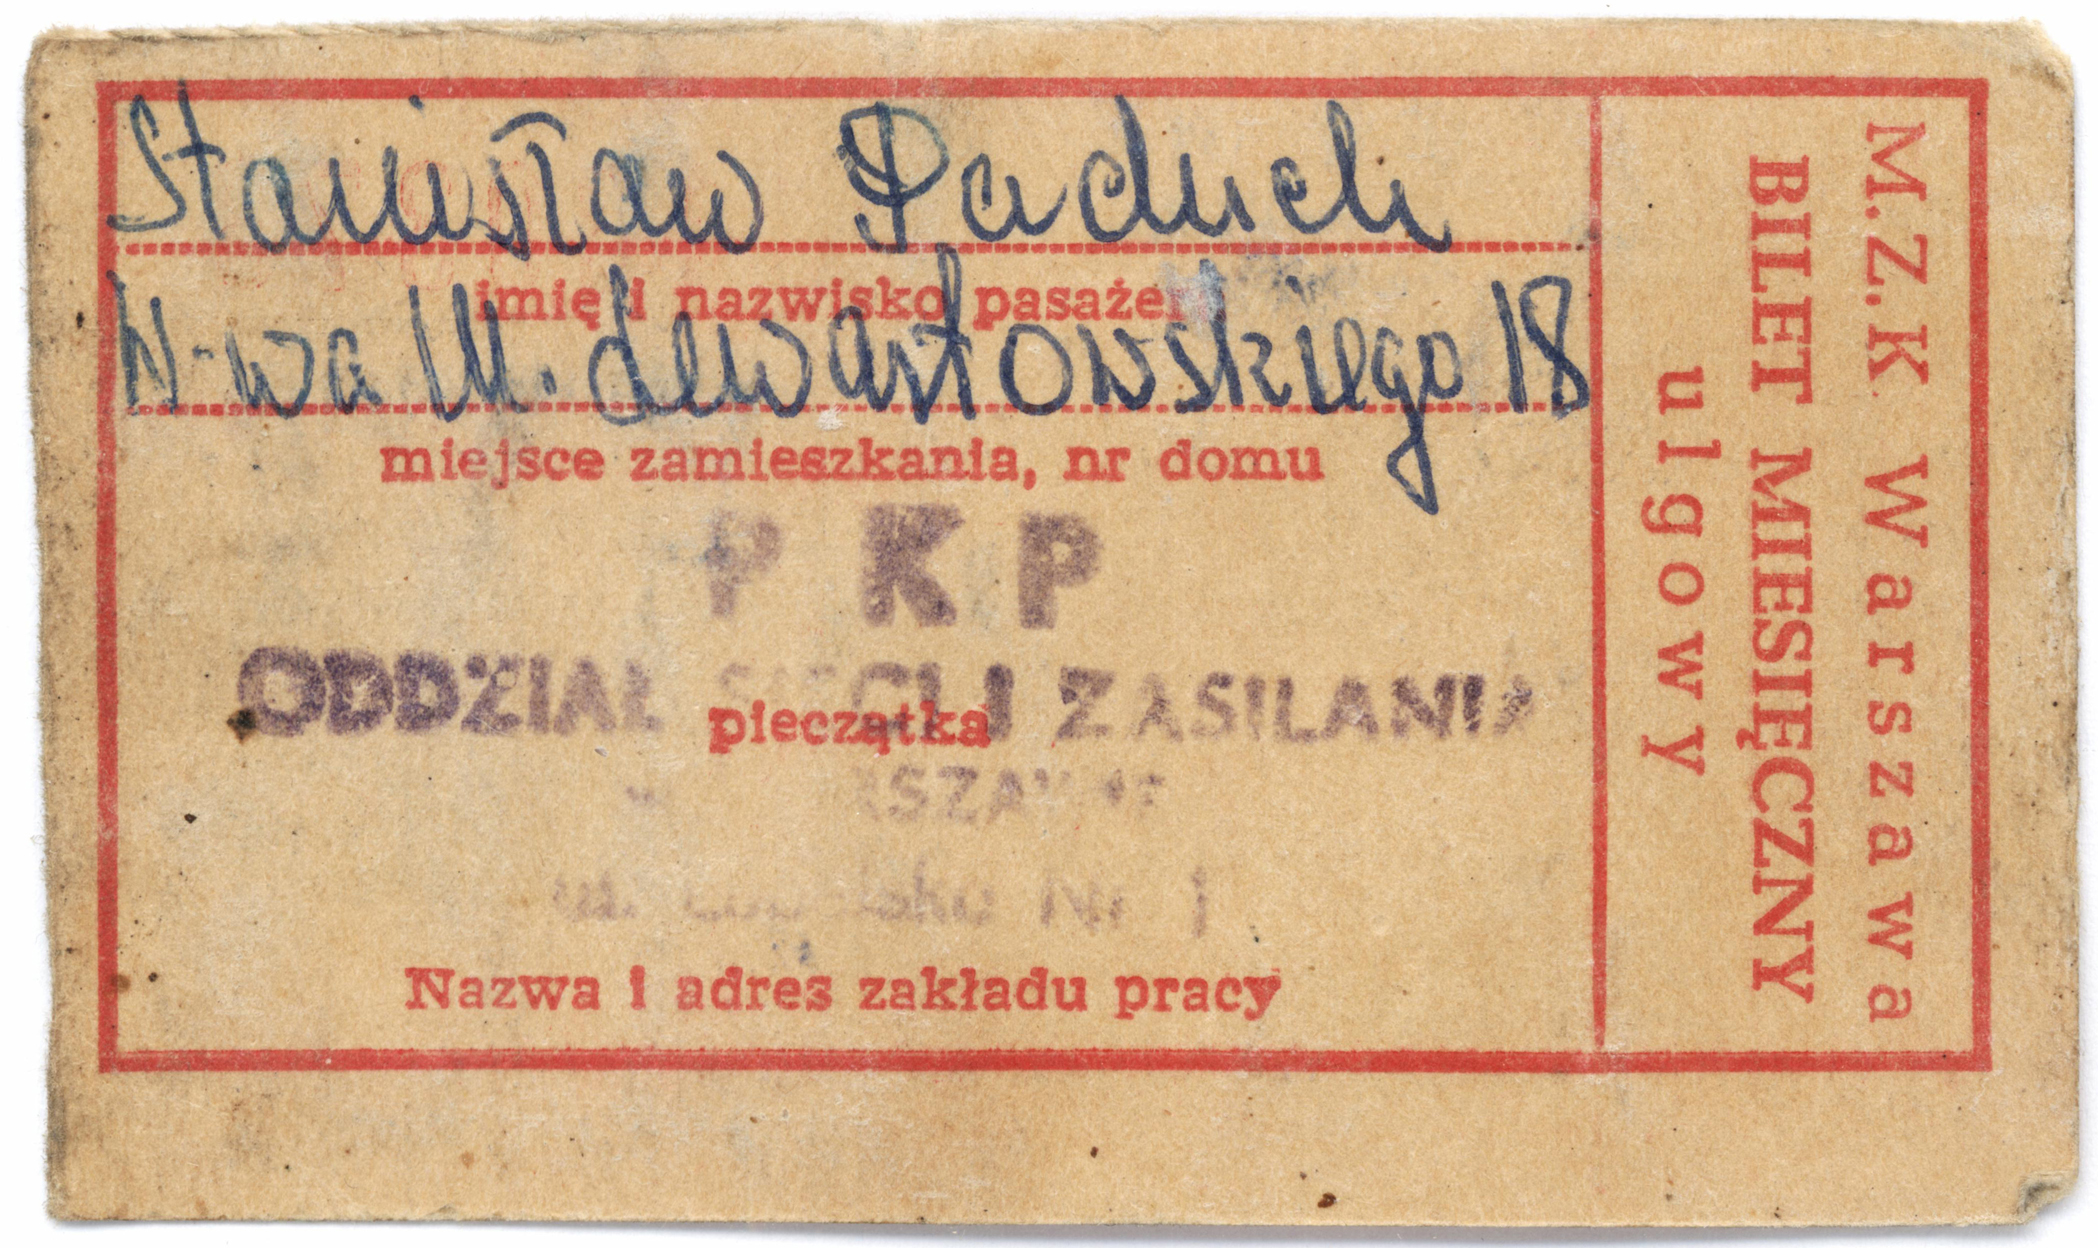 Stanisław Paduch
imię i nazwisko pasażera
W-wa Ul. Lewartowskiego 18
miejsce zamieszkania, nr domu
P K P
ODDZIAŁ SIECI I ZASILANIA
pieczątka
Nr 1
Nazwa i adres zakładu pracy
M.Z.K. Warszawa
BILET MIESIĘCZNY
ulgowy